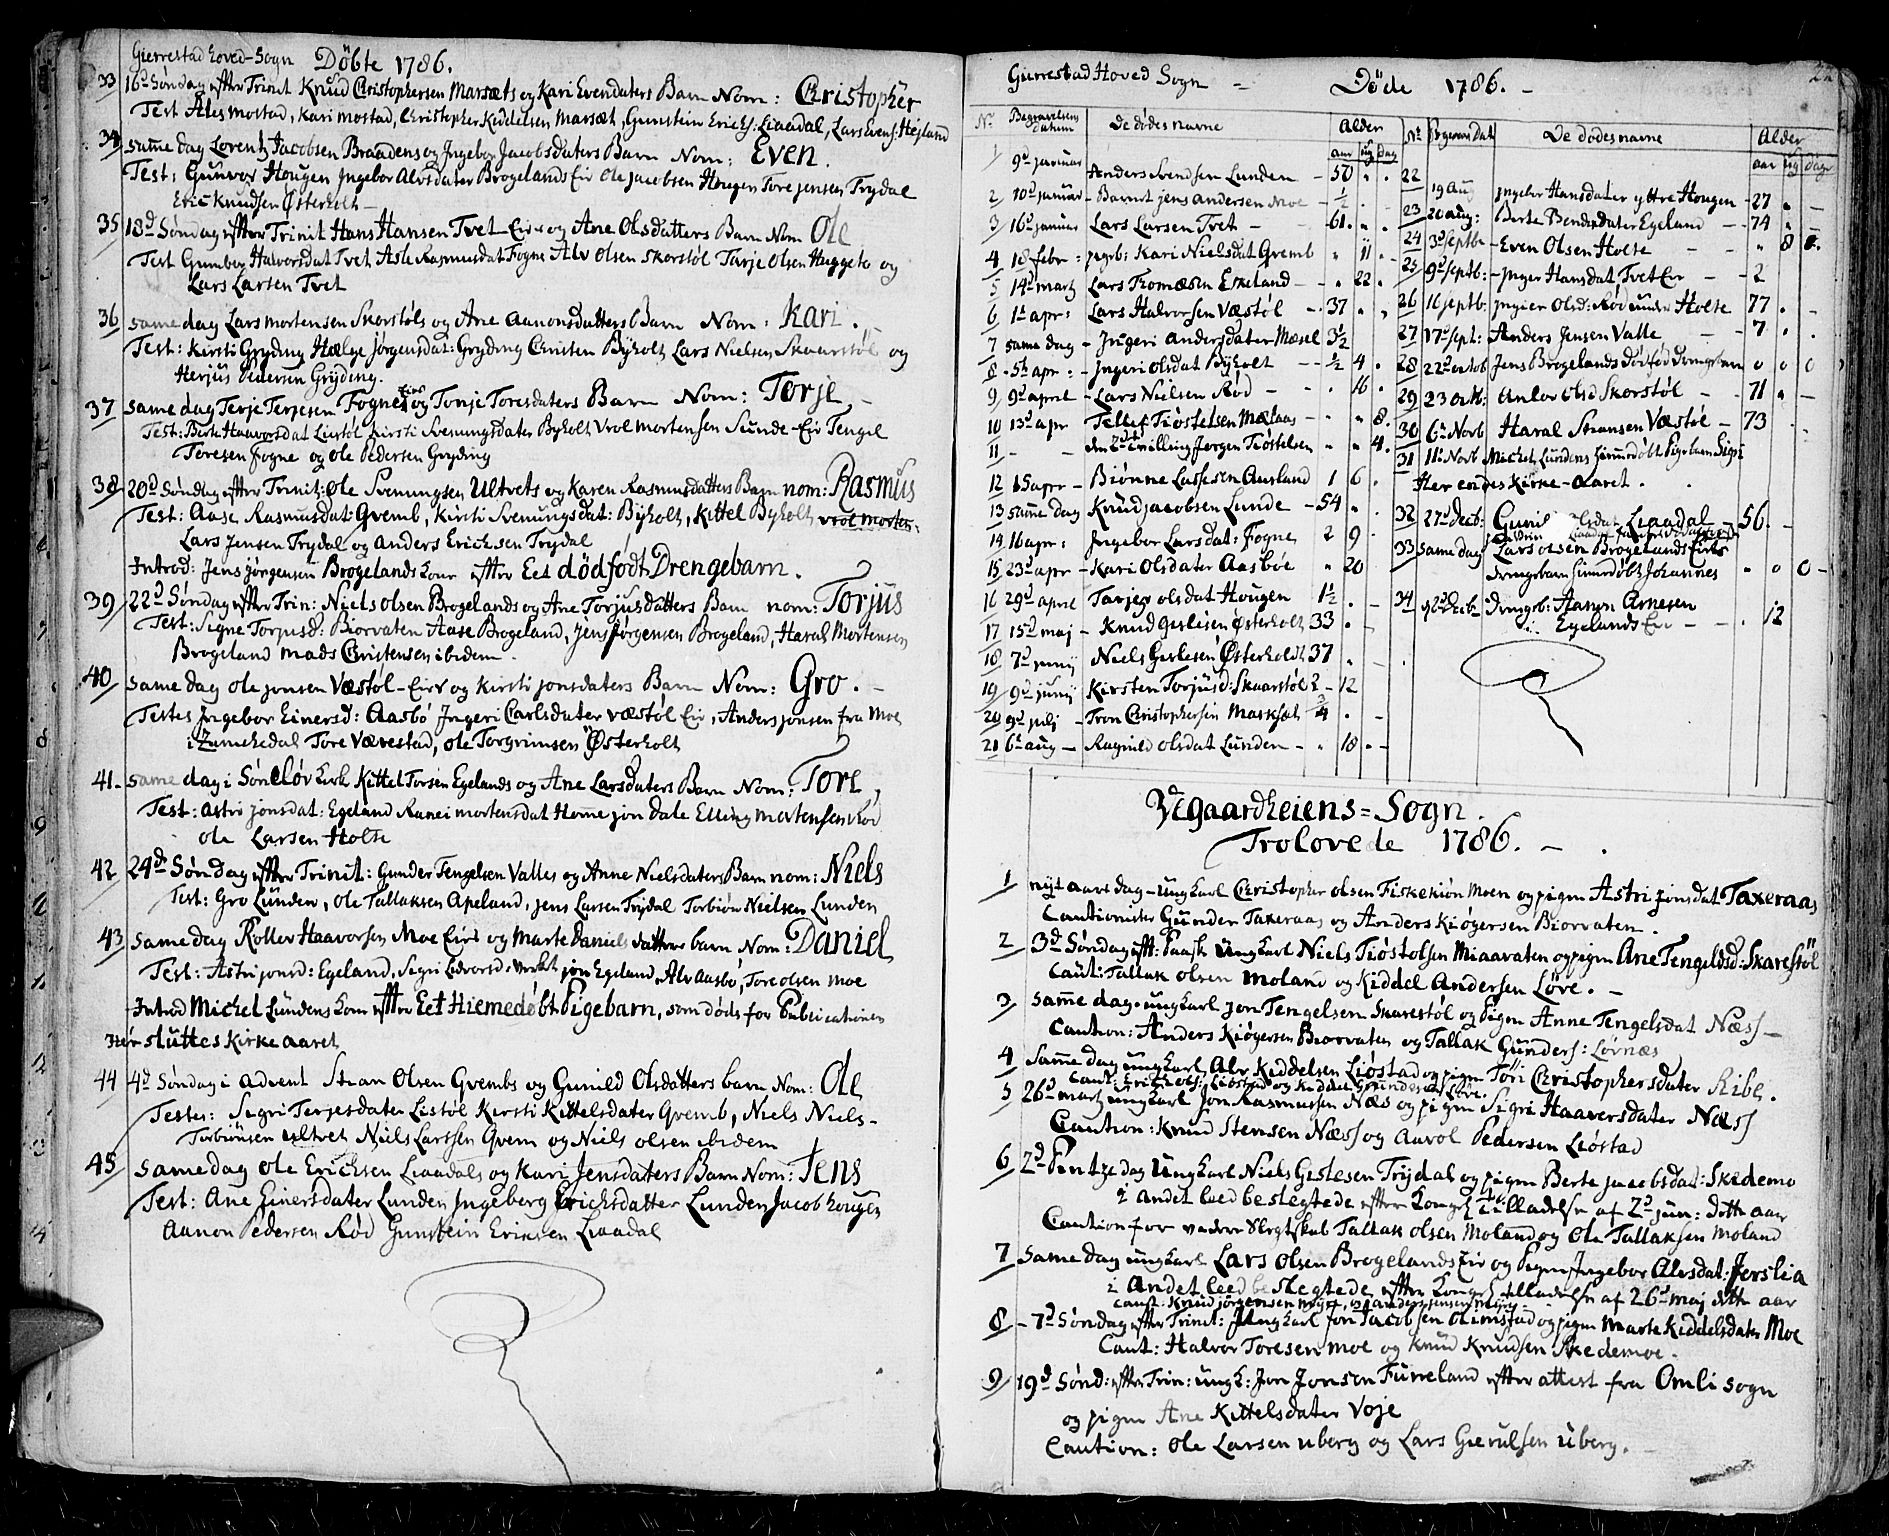 Gierrestad hoved-Sogn Döbte 1786.
33 16d Söndag efter Trinit Knud Christophersen Marsæts og Kari Evendaters Barn Nom: Christopher
Test Ales mostad, Kari mostad, Christopher Keddelsen, Marsæt, Gunstein Erichs: Liaadal, Lars Evens: Hejland
34 samme dag Lorentz Jacobsen Braadens og Ingebor Jacobsdaters Barn Nom: Even.
Test: Gunvor Hougen Ingebor Alvsdater Brogelands Eir Ole Jacobsen Hougen Tore Jensen Trydal
Eric Knudsen Østerholt
35 18d Söndag efter Trinit Hans Hansen Tvet Eir og Ane Olsdatters Barn Nom Ole
Test Gunbor Halvorsdat Tvet Asle Rasmusdat Fogne Alv Olsen Skorstøl Tarje Olsen Huggeto og
Lars Larsen Tvet
36 same dag Lars mortensen Skorstøls og Ane Aanonsdatters Barn Nom: Kari.
Test: Kirsti Gryding Helge Jörgensdat: Gryding Christen Byholt Lars Nielsen Skaarstøl og
Herjus Pedersen Gryding.
37 same dag Terje Terjesen Fognes Eir og Torje Toresdaters Barn Nom: Torje
Test: Berte Haavorsdat Listøl Kirsti Svenungsdater Byholt Vrol mortensen Sunde Eir Tengel
Toresen Fogne og Ole Pedersen Gryding
38 20d Söndag efter Trinit: Ole Svenungsen Ultvets og Karen Rasmusdatters Barn nom: Rasmus
Test: Aase Rasmusdat: Gvemb, Kirsti Svenungsdat: Byholt, Kittel Byholt, vrol morten:
Lars Jensen Trydal og Anders Ericksen Trydal
Introd: Jens Jørgensen Brogelands Kone efter Eet dödfödt Drengebarn.
39 22d Söndag efter Trin: Niels Olsen Brogelands og Ane Torjusdatters Barn nom: Torjus
Test: Signe Torjusd: Biorvaten Aase Brogeland, Jens Jørgensen Brogeland, Harall Mortensen
Brogeland mads Christensen ibidem.
40 same dag Ole Jonsen Væstøl Eir og Kirsti Jonsdaters Barn Nom: Gro.
Testes Ingebor Einersd: Aasbö Ingeri Carlsdater Væstøl Eir, Anders Jonsen fra Moe
Tore Værestad, Ole Torgrimsen Østerholt
41 same dag i Søndeløv Kirk Kittel Torsen Egelands og Ane Larsdaters Barn Nom: Tore,
Test: Astri Jonsdat: Egeland Ranei mortensdat Homme Jon Dale Elling mortensen Rød
Ole Larsen Holte
42 24d Söndag efter Trinit: Gunder Tengelsen Valles og Anne Nielsdaters Barn nom: Niels
Test: Gro Lunden, Ole Tallaksen Apeland, Jens Larsen Trydal Torbiön Nielsen Lunden
43 same dag Rollev Haavorsen Moe Eir og Marte Daniels datters barn, Nom: Daniel
Test: Astri Jonsd: Egeland, Sigri Jon Egeland, Alv Aasbø, Tore Olsen moe
Introd Michel Lundens Kone efter Eet Hiemedöbt Pigebarn, som döde for Publicationen
Her sluttes Kirke aaret
44 4d Söndag i Advent Stian Olsen Gvembs og Gunild Olsdatters barn Nom: Ole
Testes: Sigri Terjesdater Listøl Kirsti Kittelsdater Gvemb, Niels Niels-
Torbiönsen Ultvet Niels Larssen Gvem og Niels Olsen ibidem
45 same dag Ole Ericksen Liaadals og Kari Jensdaters Barn Nom: Jens
Test: Ane Einersdater Lunden Ingeborg Erichsdatter Lunden Jacob hougen
Aanon Pedersen Rød Gunstein Eriksen Liaadal
Gierrestad Hoved Sogn = Döde 1786.
No Begravelsens datum De dødes navne Alder No Begrav: Dat De dødes navne Alder
aar ug dag aar ug dage
1 9d januar Anders Svendsen Lunden 50
2 10d januar Barnet jens Andersen Moe ½
3 16d januar Lars Larsen Tvet 61
4 18 febr: pigeb: Kari Nielsdat Gvemb 11
5 14d martz Lars Thomæsen Eskeland 22
6 1d apr: Lars Halvorsen Væstøl 37
7 same dag Ingeri Andersdater Mæsel 3½
8 5d apr: Ingeri Olsdat Byholt ½ 4
9 9d april Lars Nielsen Rød 16
10 13d apr Tellef Tiøstelsen Mælaas 8
11 den 2d tvilling Jørgen Tiöstelsen 4
12 15 apr Biønne Lassesen Ausland 1 6
13 same dag Knud Jacobsen Lunde 54
14 16 apr: Ingebor Larsdat: Fogne 2 9
15 23d apr Kari Olsdater Aasböe 20
16 29d april Tarjer Olsdat Hougen 1½
17 15d maj Knud Gerlesen Østerholt 33
18 7d junij Niels Gerlesen Østerholdt 37
19 9d junij Kirsten Torjusd: Skaarstøl 2 12
20 9d julj Tron Christophersen Marksæt ¾
21 6d aug Ragnild Olsdat Lunden 18
22 19 Aug Ingebor Hansdater yttre Hougen 27
23 20 aug: Berte Bendixdater Egeland 74
24 3d septbr Even Olsen Holte 8
25 9d septb: Inger Hansdat, Tvet Eir 2
26 16 septb: Ingier Olsd: Rød under Holte 77
27 17d sept: Anders Jensen Valle 7
28 22d octob Jens Brogelands dödfød drengebarn 0 0 0
29 23 oct: Anlov Olsd Skorstøl 71
30 6d Novb Haral Stiansen Væstøl 73
31 11d Novb Michel Lundens hiemedøbt Pigebarn Sigri
Her endes Kirke-Aaret.
32 27d decb: Gunild Olsdat Liaadal 56
33 same dag Lars Olsen Brogelands Eirs
drengebarn hiemdøbt Johannes 0 0
34 decb drengeb: Aanon Arnesen
Egelands Eir 12
Ydgaardheiens=Sogn.
Trolovede 1786.
1 nyt aars dag ungkarl Christopher Olsen Fiskekiön Moen og pigen Astri Jonsdat Taxeraas
Cautionister Gunder Taxeraas og Anders Kiøgersen Biorvaten.
2 3d Söndag eft: Paask ungkarl Niels Tiøstolsen Miaavaten og pigen Ane Tengelsd: Skarestöl
Caut: Tallak Olsen Moland og Kiddel Andersen Løve.
3 samme dag ungkarl Jon Tengelsen Skarestøl og Pigen Anne Tengelsdat Næss
Caution: Anders Kiøgersen Biorvaten og Tallak Gunders: Lövnæs
4 Samme dag ungkarl Alv Kiddelsen Liøstad og pigen Tori Christophersdater Ribe.
Caut: Erik Ols: Liøstad og Kiddel Gundersen Løve.
5 26d martz ungkarl Jon Rasmussen Næs og pigen Sigri Haaversdater Næss
Caution: Knud Stensen Næss og Aurol Pedersen Liøstad
6 2d Pintze dag Ungkarl Niels Gerlesen Trydal og pigen Berte Jacobsdat: Skedemo
i andet leed beslegtede efter Kongel: Tilladelse af 2d Jun: dette aar
Caution for vedere Slegtskab Tallak Olsen Moland og Ole Tallaksen Moland
7 same dag ungkarl Lars Olsen Brogelands Eir og Pigen Ingebor Alvsdat: Jerslia
i Andet leed beslegtede efter Kongel: tilladelse af 26d maj dette aar
8 7d Söndag efter Trinit: Ungkarl Jon Jacobsen Olimstad og pigen Marte Kiddelsdater Moe
Caut: Halvor Toresen moe og Knud Knudsen Skedemoe.
9 19d Sönd: efter Trin: ungk: Jon Jonsen Furreland efter attest fra Omli sogn
og pigen Ane Kittelsdater Voje
Caution: Ole Larsen Uberg og Lars Gierulsen Uberg.